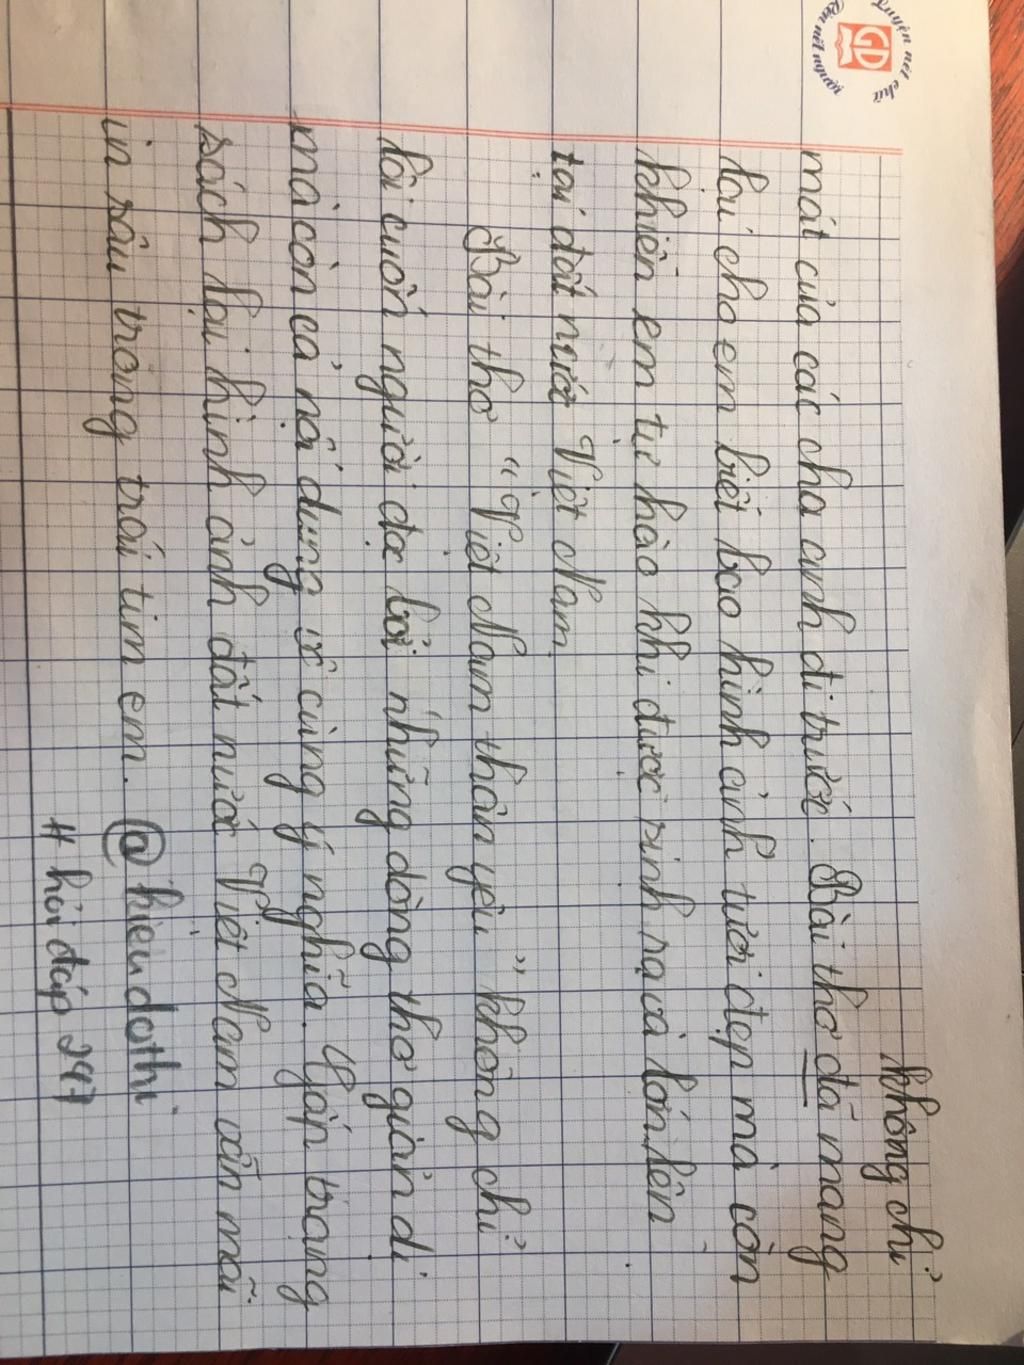 Luyện nét chữ
Rèn nết người
GD
không chỉ
mát của các cha anh đi trước. Bài thơ đã mang
lại cho em biết bao hình ảnh tươi đẹp mà còn
khiến em tự hào khi được sinh ra và lớn lên
tại đất nước Việt Nam.
Bài thơ "Việt Nam thân yêu" không chỉ
lôi cuốn người đọc bởi những dòng thơ giản dị
mà còn cả nội dung vô cùng ý nghĩa. Gấp trang
sách lại hình ảnh đất nước Việt Nam vẫn mãi
in sâu trong trái tim em. @hieudothi
# hỏi đáp 247